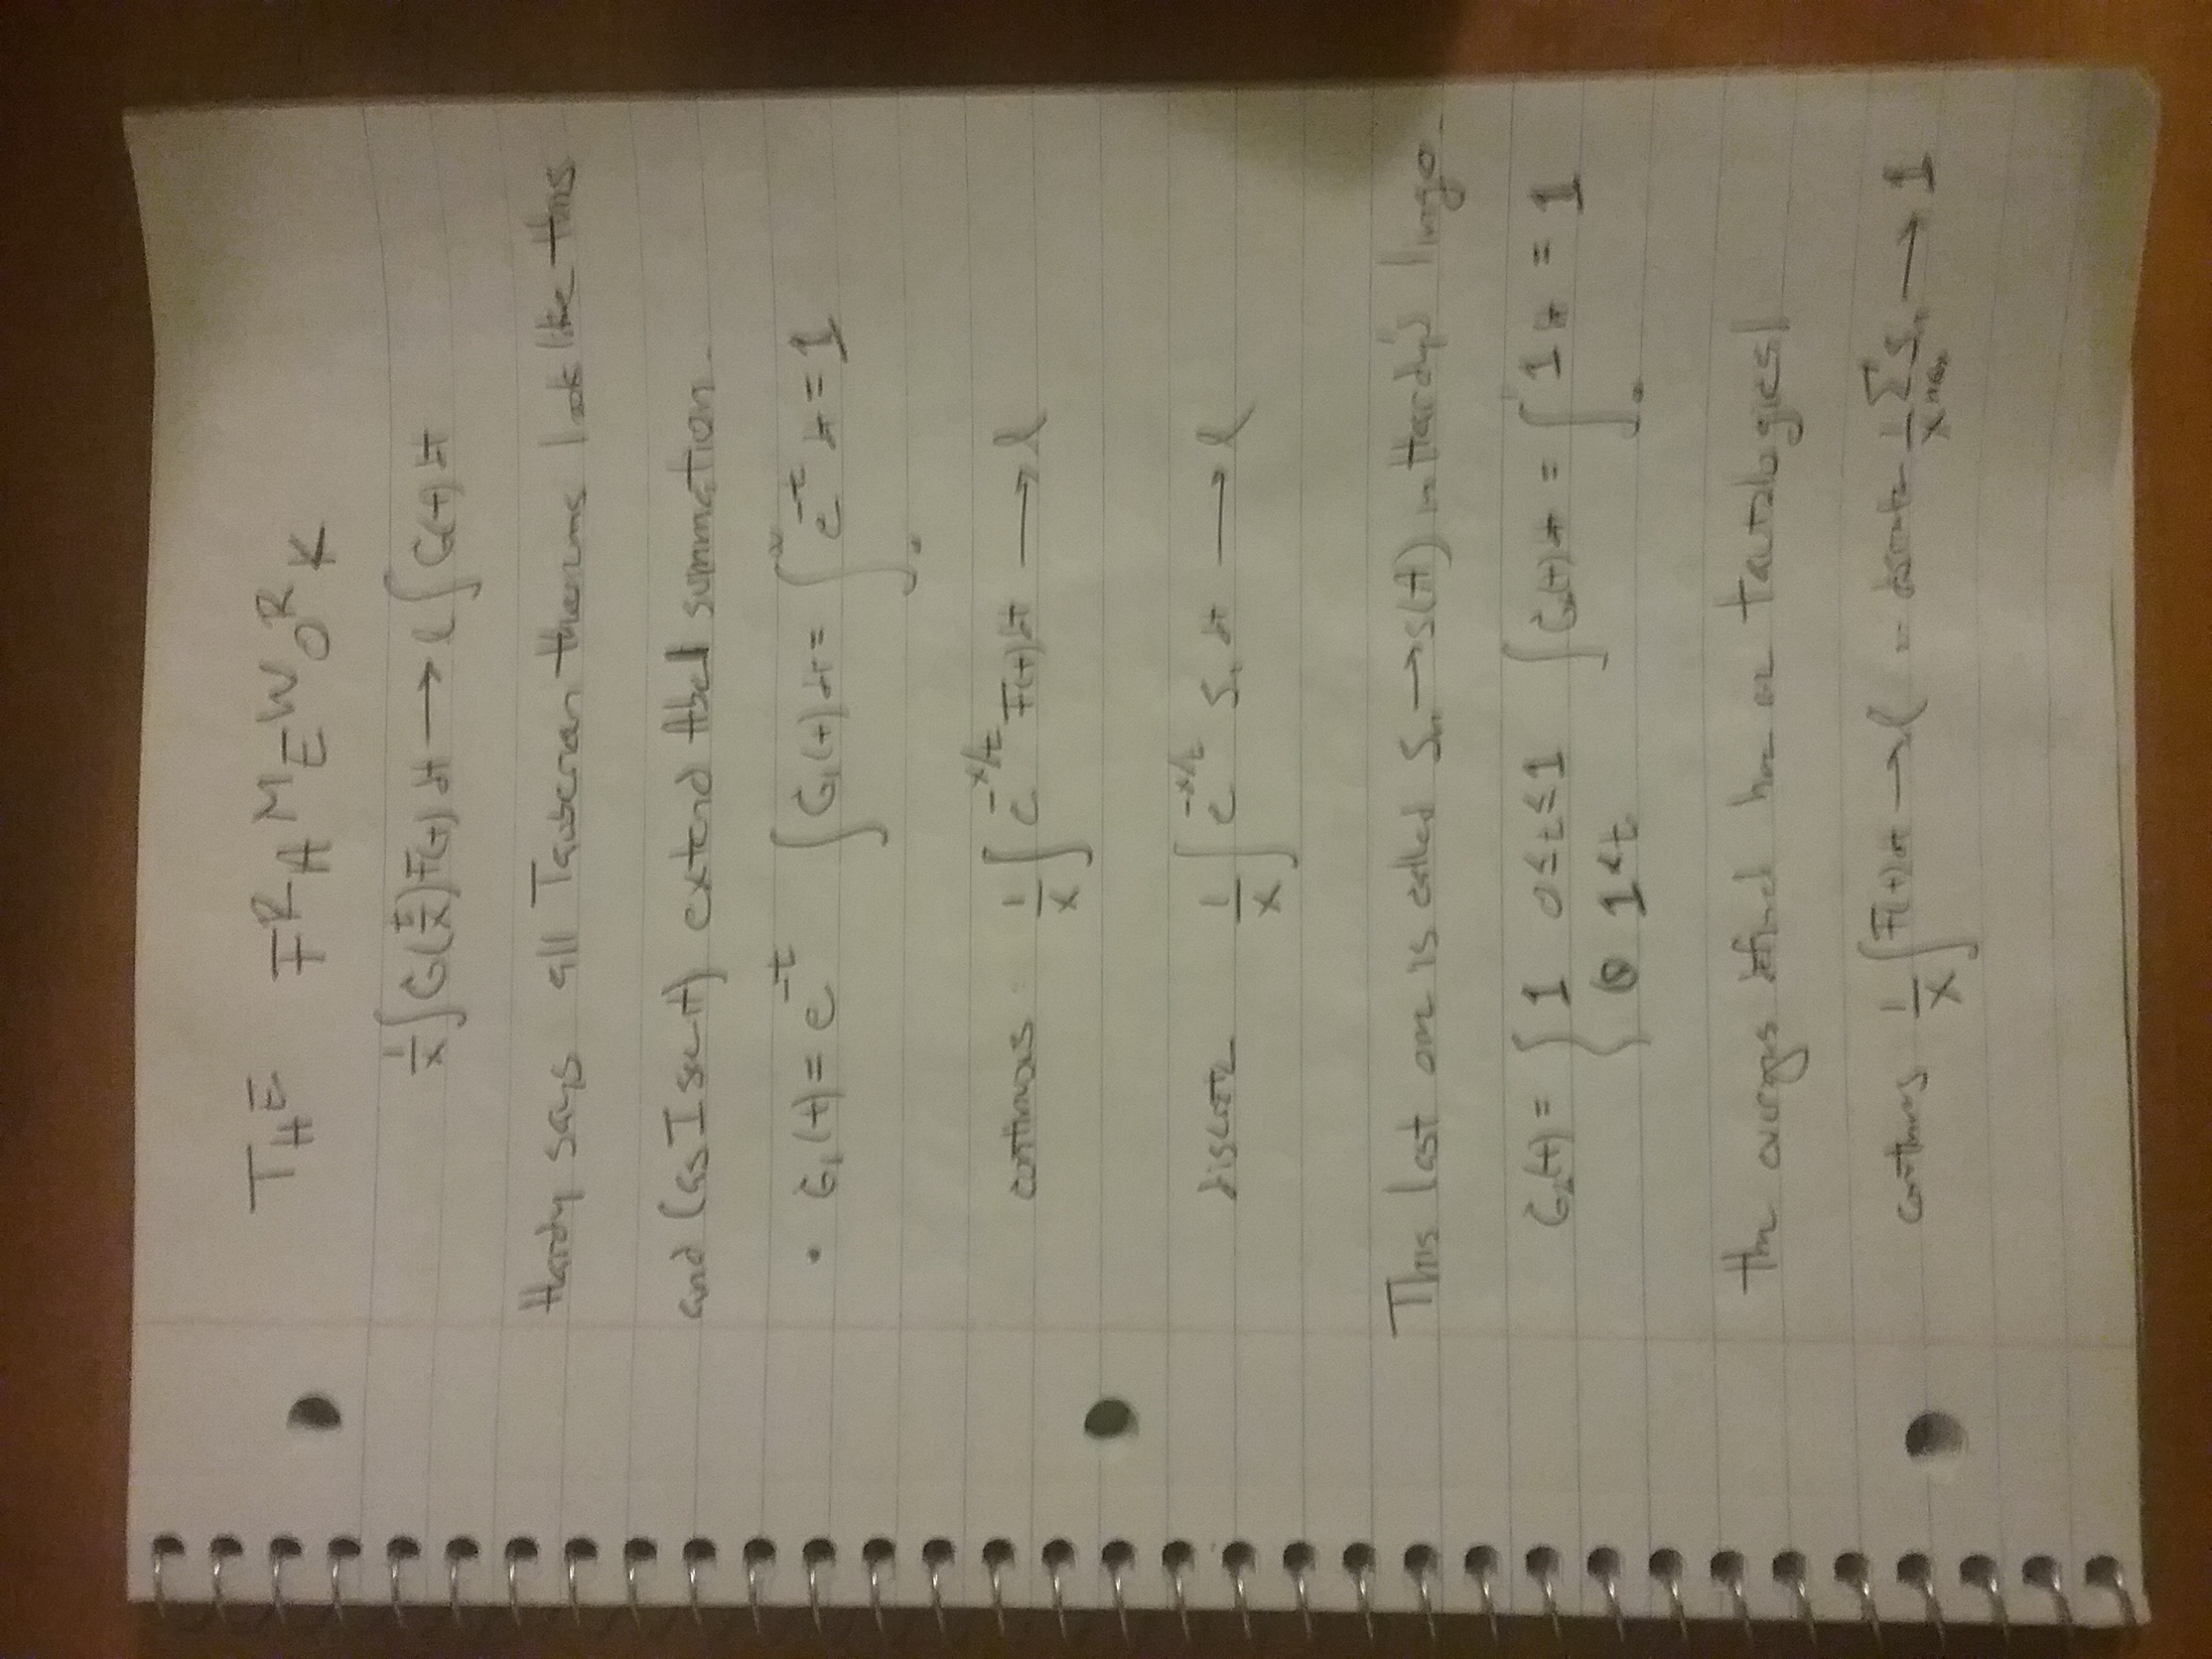 THE FRAMEWORK
1/x ∫ G(t/x) F(t) dt → l ∫ G(t) dt
Hardy says all Tauberian theorems look like this
and (as I see it) extend Abel summation.
• G₁(t) = e^{-t} ∫ G₁(t) dt = ∫₀^∞ e^{-t} dt = 1
continuous 1/x ∫ e^{-x/t} F(t) dt → l
discrete 1/x ∫ e^{-x/t} Sₙ dt → l
This last one is called Sₙ → s(A) in Hardy's lingo.
G₂(t) = { 1 0 ≤ t ≤ 1 ∫ G₂(t) dt = ∫₀¹ 1 dt = 1
0 1 < t
the averages defined here are tautologies!
continuous 1/x ∫ F(t) dt → l discrete 1/x ∑ Sₙ → 1